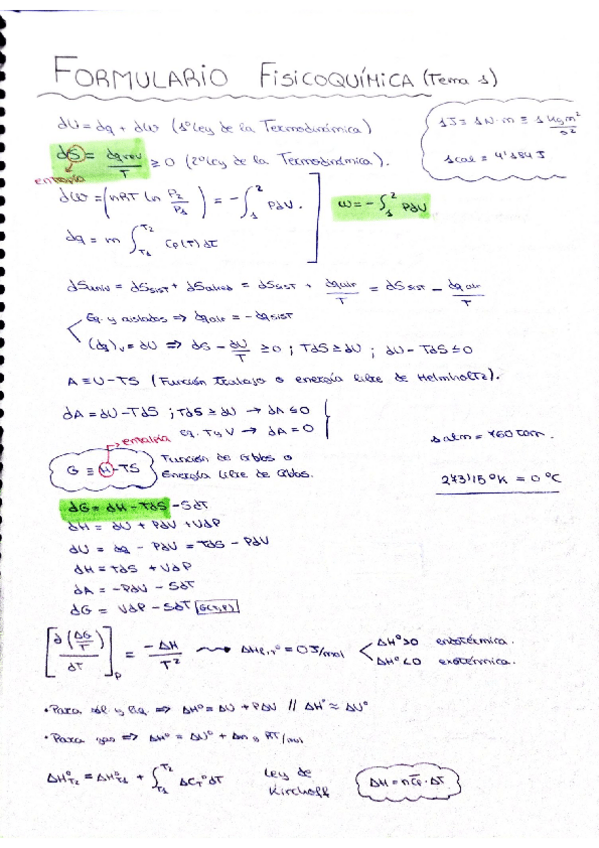 FORMULARIO FISICOQUÍMICA (Tema 1)
dU = dq + dW (1º Ley de la Termodinámica)
1J = 1N·m ≡ 1 kg m²/s²
1cal = 4'184 J
dS = dq rev / T ≥ 0 (2º Ley de la Termodinámica).
entropía
dW = (nRT ln P₂/P₁) = -∫₁² PdV.
W = -∫₁² PdV
dq = m ∫_{T₁}^{T₂} Cp(T) dT
dSuniv = dSsist + dSalred = dSsist + dqalr/T = dSsist - dqalr/T
Eq. y aislados ⇒ dqalr = -dqsist
(dq)ᵥ = dU ⇒ dS - dU/T ≥ 0 ; TdS ≥ dU ; dU - TdS ≤ 0
A ≡ U - TS (Función trabajo o energía libre de Helmholtz).
dA = dU - TdS ; TdS ≥ dU → dA ≤ 0
eq. T y V → dA = 0
entalpía
1 atm = 760 torr.
G ≡ H - TS
Función de Gibbs o
Energía Libre de Gibbs.
273'15 °K = 0 °C
dG = dH - TdS - SdT
dH = dU + PdV + VdP
dU = dq - PdV = TdS - PdV
dH = TdS + VdP
dA = -PdV - SdT
dG = VdP - SdT G(T,P)
[∂(ΔG/T) / ∂T]ₚ = -ΔH/T² ⟿ ΔH = 0 J/mol
ΔHº>0 endotérmica.
ΔHº<0 exotérmica.
• Para sól. y líq. ⇒ ΔHº = ΔU + PΔV // ΔHº ≈ ΔUº
• Para gas ⇒ ΔHº = ΔUº + Δn g RT /mol
ΔHº_{T₂} = ΔHº_{T₁} + ∫_{T₁}^{T₂} ΔCₚº dT
Ley de
Kirchoff
ΔH = nC̄p · ΔT